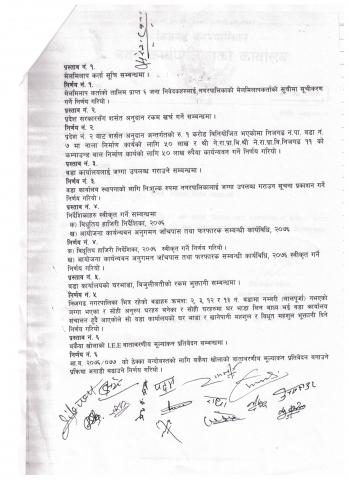 प्रस्ताव नं. १.
मेलमिलाप कर्ता सुचि सम्बन्धमा ।
निर्णय नं. १.
मेलमिलाप कर्ताको तालिम प्राप्त ६ जना निवेदकहरुलाई नगरपालिकाको मेलमिलापकर्ताको सूचीमा सूचीकरण
गर्ने निर्णय गरियो ।
प्रस्ताव नं. २.
प्रदेश सरकारसँग शर्सत अनुदान रकम खर्च गर्ने सम्बन्धमा ।
निर्णय नं. २.
प्रदेश नं. २ बाट शर्सत अनुदान अन्तर्गतको रु. १ करोड विनियोजित भएकोमा निजगढ न.पा. वडा नं.
७ मा नाला निर्माण कार्यको लागि ५० लाख र श्री ने.रा.प्रा.वि.श्री ने.रा.प्रा.वि.निजगढ ११ को
कम्पाउण्ड वाल निर्माण कार्यको लागि ५० लाख रुपैया कार्यान्वयन गर्ने निर्णय गरियो ।
प्रस्ताव नं. ३.
वडा कार्यालयलाई जग्गा उपलब्ध गराउने सम्बन्धमा ।
निर्णय नं. ३.
वडा कार्यालय स्थापनाको लागि निःशुल्क रुपमा नगरपालिकालाई जग्गा उपलब्ध गराउन सूचना प्रकाशन गर्ने
निर्णय गरियो ।
प्रस्ताव नं. ४.
निर्देशिकाहरु स्वीकृत गर्ने सम्बन्धमा
क) विधुतिय हाजिरी निर्देशिका, २०७६
ख) आयोजना कार्यन्वयन अनुगमन जाँचपास तथा फरफारक सम्बन्धी कार्यबिधि, २०७६
निर्णय नं. ४.
क) विधुतिय हाजिरी निर्देशिका, २०७६ स्वीकृत गर्ने निर्णय गरियो ।
ख) आयोजना कार्यन्वयन अनुगमन जाँचपास तथा फरफारक सम्बन्धी कार्यबिधि, २०७६ स्वीकृत गर्ने
निर्णय गरियो ।
प्रस्ताव नं. ५.
वडा कार्यालयको घरभाडा, विजुलीबत्तीको रकम भुक्तानी सम्बन्धमा ।
निर्णय नं. ५
निजगढ नगरपालिका भित्र रहेको वडाहरु क्रमशः २, ३, १२ र १३ नं. वडामा नम्बरी (लालपुर्जा) नभएको
जग्गा भएका र सोही अनुरुप घरहरु बनेका र सोही घरहरुमा घर भाडा लिन बाध्य भई वडा कार्यालय
संचालन हुदै आएकोले सो वडा कार्यालयको घर भाडा र खानेपानी महशुल र विधुत महशुल भुक्तानी दिने
निर्णय गरियो ।
प्रस्ताव नं. ६
बकैया खोलाको I.E.E वातावरणीय मुल्याकन प्रतिवेदन सम्बन्धमा ।
निर्णय नं. ६
आ.व. २०७६/०७७ को ठेक्का बन्दोबस्तको लागि बकैया खोलाको वातावरणीय मूल्याकन प्रतिवेदन बनाउने
प्रक्रिया अगाडी बढाउने निर्णय गरियो ।